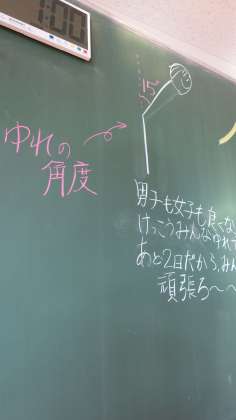 1:00
15°
ゆれの
角度
男子も女子も良くな
けっこうみんなゆれて
あと2日だから、みん
頑張ろ〜〜